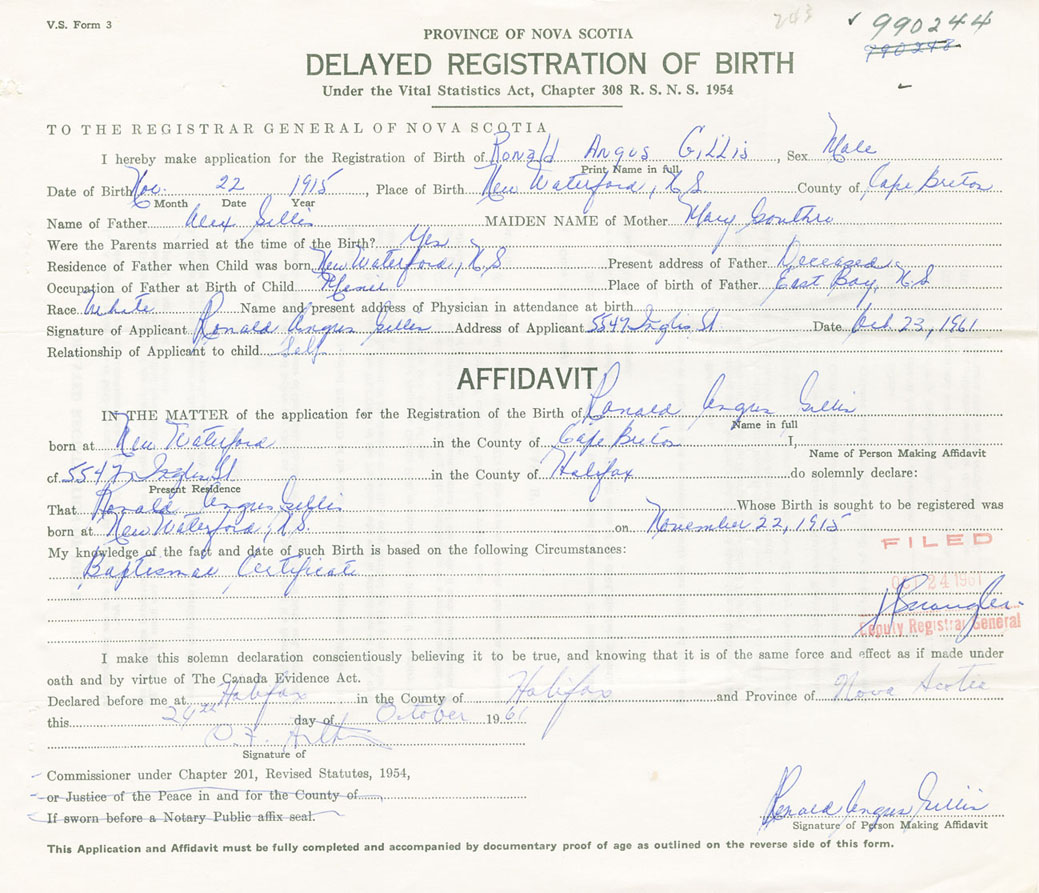 V.S. Form 3
243
✓ 990244
PROVINCE OF NOVA SCOTIA
DELAYED REGISTRATION OF BIRTH
Under the Vital Statistics Act, Chapter 308 R. S. N. S. 1954
TO THE REGISTRAR GENERAL OF NOVA SCOTIA
I hereby make application for the Registration of Birth of Ronald Angus Gillis, Sex Male
Print Name in full
Date of Birth Nov. 22 1915, Place of Birth New Waterford, N.S. County of Cape Breton
Month Date Year
Name of Father Alex Gillis MAIDEN NAME of Mother Mary Gouthro
Were the Parents married at the time of the Birth? Yes
Residence of Father when Child was born New Waterford, N.S Present address of Father Deceased
Occupation of Father at Birth of Child Miner Place of birth of Father East Bay, N.S
Race White Name and present address of Physician in attendance at birth
Signature of Applicant Ronald Angus Gillis Address of Applicant 5547 Inglis St Date Oct. 23, 1961
Relationship of Applicant to child Self
AFFIDAVIT
IN THE MATTER of the application for the Registration of the Birth of Ronald Angus Gillis
Name in full
born at New Waterford in the County of Cape Breton I,
Name of Person Making Affidavit
of 5547 Inglis St in the County of Halifax do solemnly declare:
Present Residence
That Ronald Angus Gillis Whose Birth is sought to be registered was
born at New Waterford, N.S. on November 22, 1915
My knowledge of the fact and date of such Birth is based on the following Circumstances:
Baptismal Certificate
FILED
OCT 24 1961
Deputy Registrar General
I make this solemn declaration conscientiously believing it to be true, and knowing that it is of the same force and effect as if made under
oath and by virtue of The Canada Evidence Act.
Declared before me at Halifax in the County of Halifax and Province of Nova Scotia
this 24th day of October 1961
Signature of
Commissioner under Chapter 201, Revised Statutes, 1954,
or Justice of the Peace in and for the County of
If sworn before a Notary Public affix seal.
Ronald Angus Gillis
Signature of Person Making Affidavit
This Application and Affidavit must be fully completed and accompanied by documentary proof of age as outlined on the reverse side of this form.